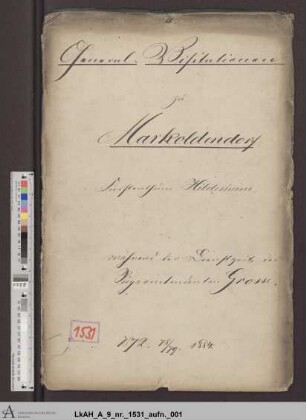 General-Visitationen
zu
Markoldendorf
Fürstenthum Hildesheim
während der Dienstzeit des
Superintendenten Gross.
1531
LkAH_A_9_nr._1531_aufn._001